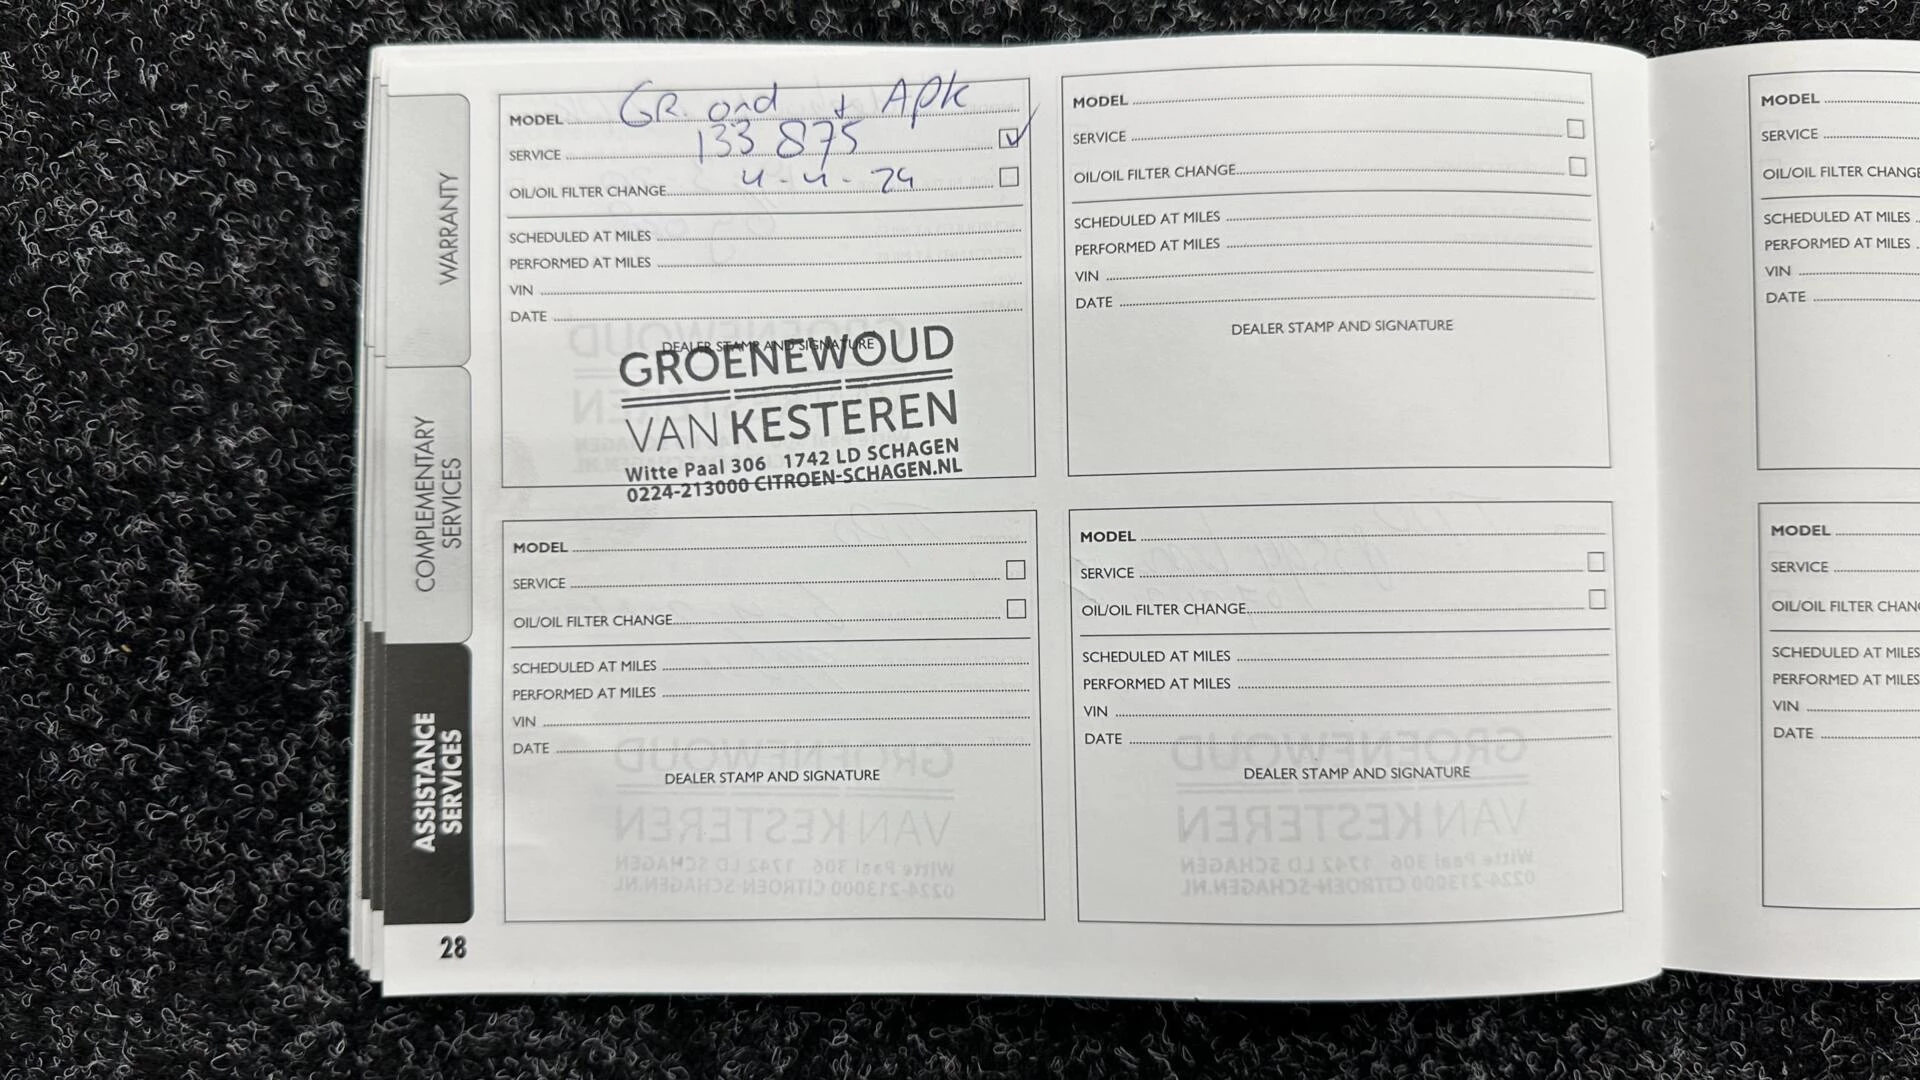 WARRANTY
COMPLEMENTARY
SERVICES
ASSISTANCE
SERVICES
28
MODEL GR. ond + APK
SERVICE 133 875
OIL/OIL FILTER CHANGE 4-4-24
SCHEDULED AT MILES
PERFORMED AT MILES
VIN
DATE
DEALER STAMP AND SIGNATURE
GROENEWOUD
VAN KESTEREN
Witte Paal 306 1742 LD SCHAGEN
0224-213000 CITROEN-SCHAGEN.NL
MODEL
SERVICE
OIL/OIL FILTER CHANGE
SCHEDULED AT MILES
PERFORMED AT MILES
VIN
DATE
DEALER STAMP AND SIGNATURE
MODEL
SERVICE
OIL/OIL FILTER CHANGE
SCHEDULED AT MILES
PERFORMED AT MILES
VIN
DATE
DEALER STAMP AND SIGNATURE
MODEL
SERVICE
OIL/OIL FILTER CHANGE
SCHEDULED AT MILES
PERFORMED AT MILES
VIN
DATE
DEALER STAMP AND SIGNATURE
MODEL
SERVICE
OIL/OIL FILTER CHANGE
SCHEDULED AT MILES
PERFORMED AT MILES
VIN
DATE
MODEL
SERVICE
OIL/OIL FILTER CHAN
SCHEDULED AT MILES
PERFORMED AT MILES
VIN
DATE